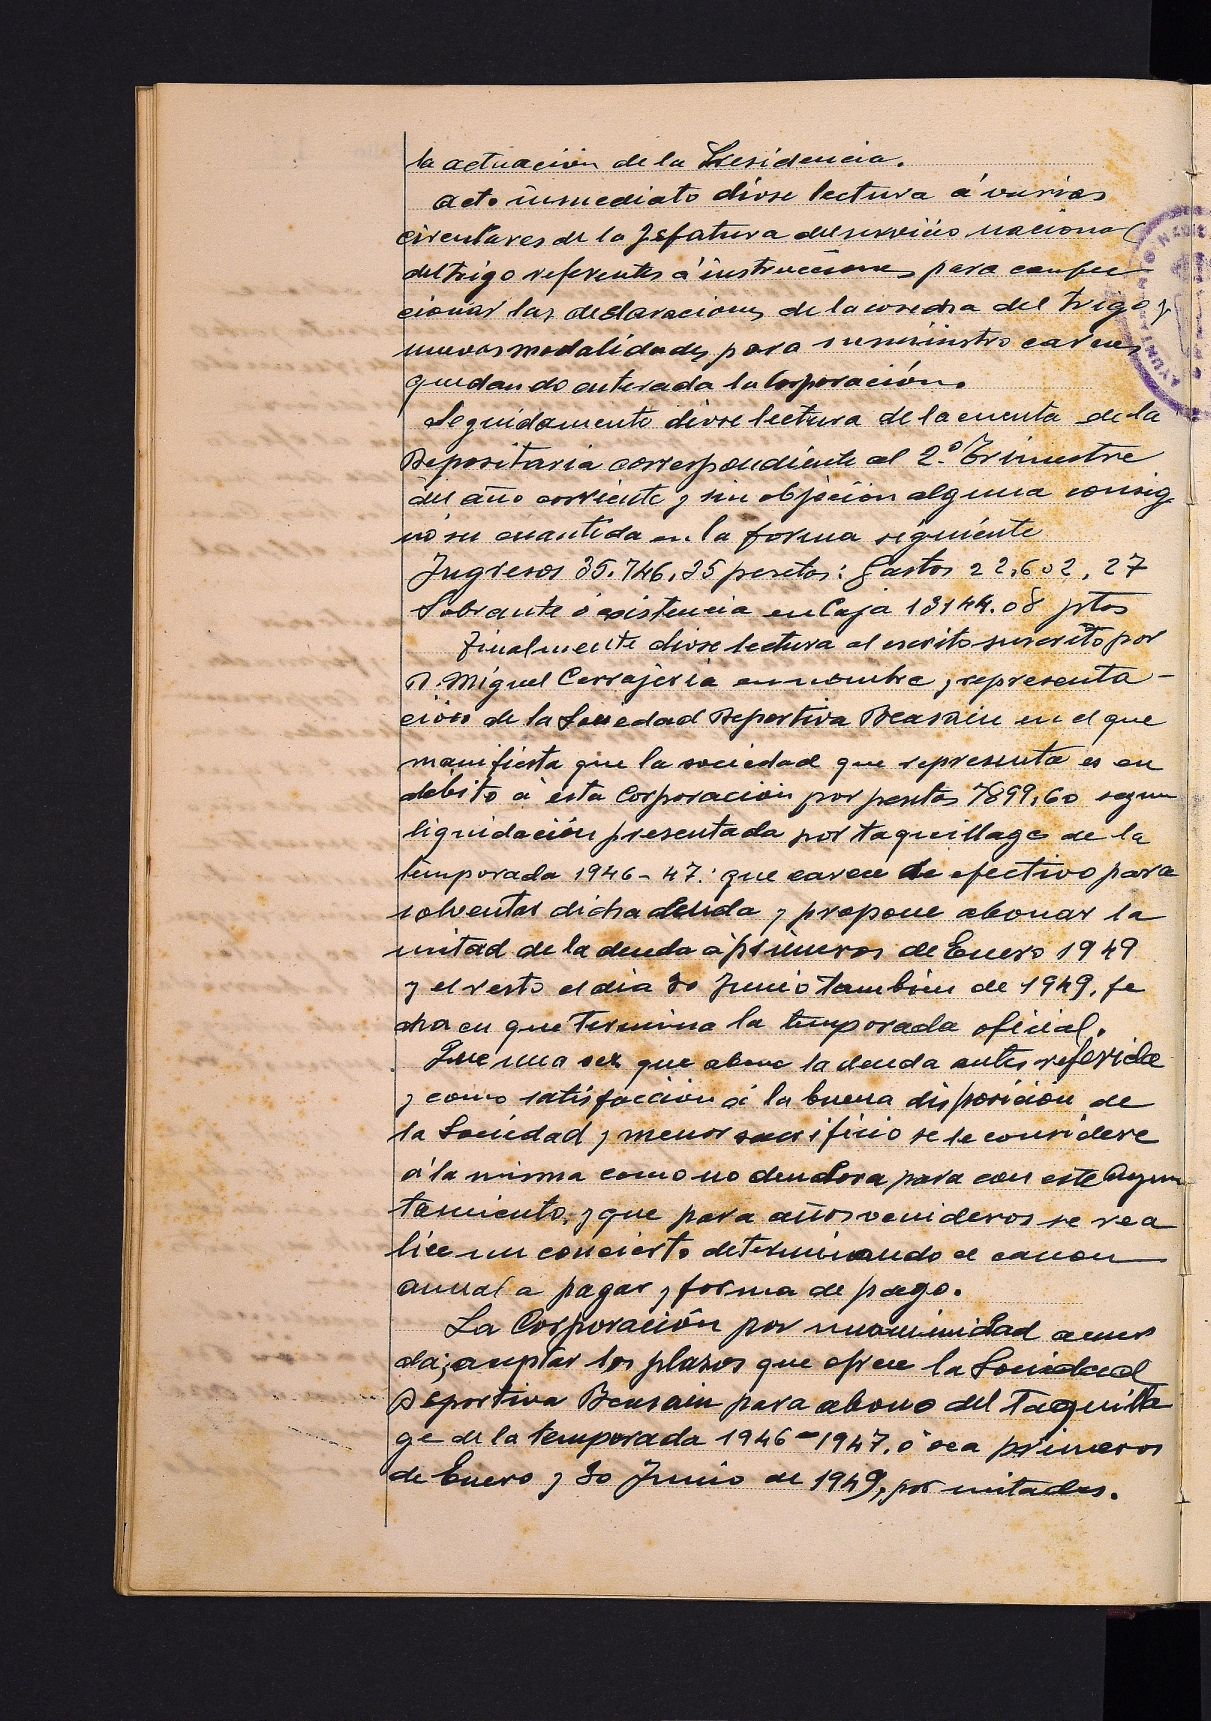 la actuación de la Presidencia.
Acto inmediato dióse lectura á varias
circulares de la Jefatura del servicio nacional
del trigo referentes á instrucciones para confec
cionar las declaraciones de la cosecha del trigo y
nuevas modalidades para suministro carnes
quedando enterada la Corporación.
Seguidamente dióse lectura de la cuenta de la
Depositaria correspondiente al 2.º Trimestre
del año corriente y sin objeción alguna consig
nó su cuantida en la forma siguiente
Ingresos 35.746,35 pesetas: Gastos 22,602,27
Sobrante ó existencia en Caja 13144.08 ptas
Finalmente dióse lectura al escrito suscrito por
D. Miguel Cerrajeria en nombre y representa-
ción de la Sociedad Deportiva Beasain en el que
manifiesta que la sociedad que representa es en
débito á esta Corporación por pesetas 7899,60 segun
liquidación presentada por taquillage de la
temporada 1946-47: que carece de efectivo para
solventar dicha deuda y propone abonar la
mitad de la deuda á primeros de Enero 1949
y el resto el dia 30 Junio tambien de 1949, fe
cha en que termina la temporada oficial.
Que una vez que abone la deuda antes referida
y como satisfacción á la buena disposición de
la Sociedad y menor sacrificio se le considere
á la misma como no deudora para con este Ayun
tamiento, y que para años venideros se rea
lice un concierto determinando el canon
anual a pagar y forma de pago.
La Corporación por unanimidad acuer
da; aceptar los plazos que ofrece la Sociedad
Deportiva Beasain para abono del Taquilla
ge de la temporada 1946-1947. ó sea primeros
de Enero y 30 Junio de 1949, por mitades.